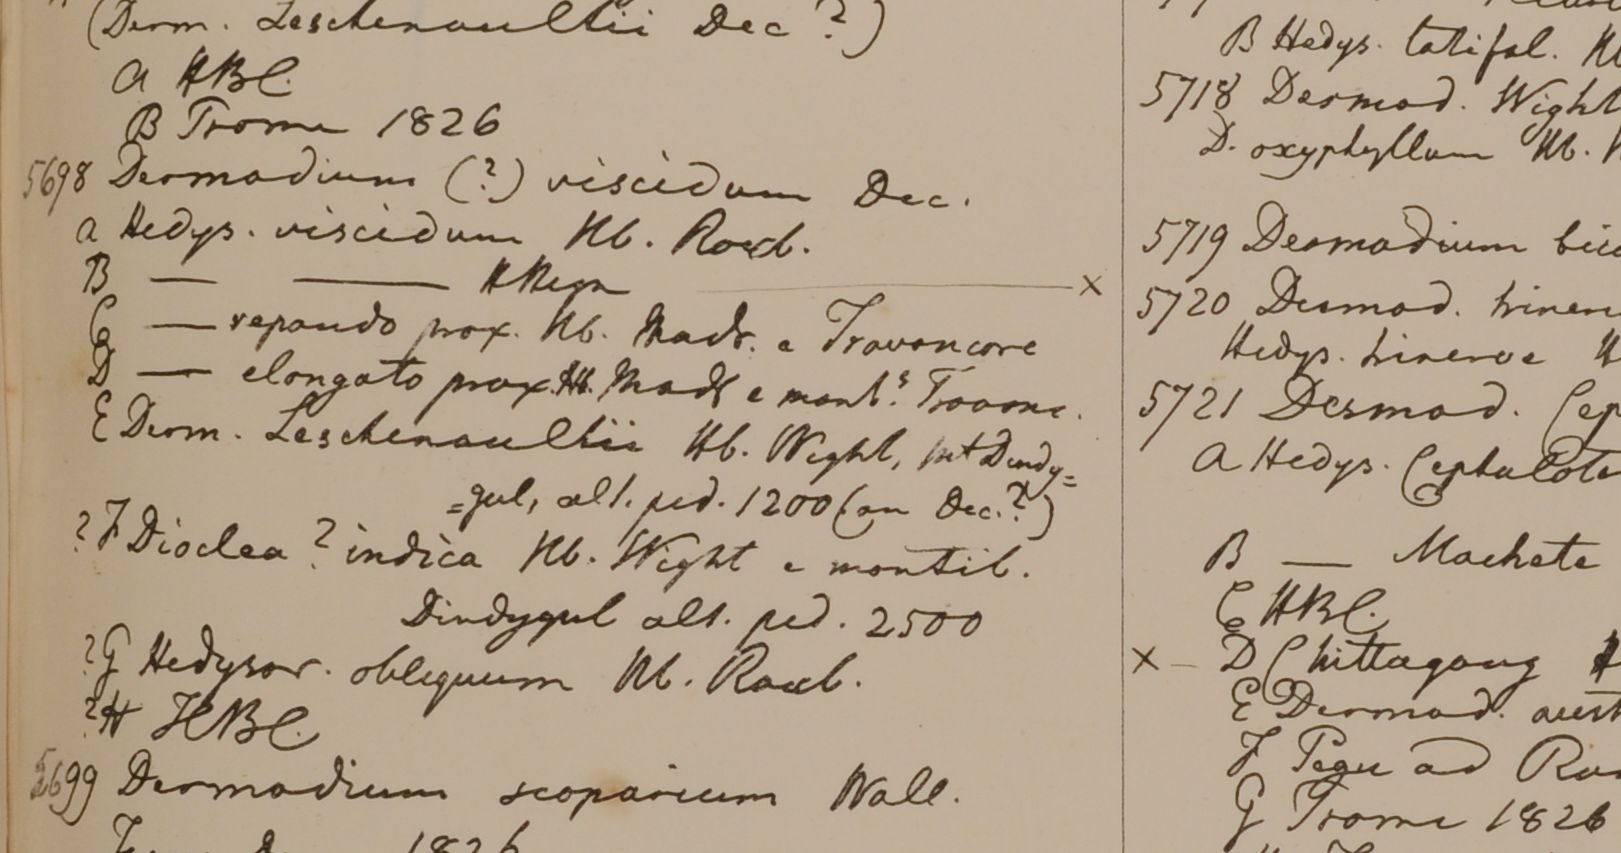 (Desm. Leschenaultii Dec ?)
A HBC.
B Prome 1826
5698 Desmodium (?) viscidum Dec.
a Hedys. viscidum Hb. Roxb.
B — —— HHegn ——— ×
C — repando prox. Hb. Madr. e Travancore
D — elongato prox. Hb. Madr e mont.s Travanc.
E Desm. Leschenaultii Hb. Wight, mt Dindy=
=gul, alt. ped. 1200 (an Dec.?)
? F Dioclea ? indica Hb. Wight e montib.
Dindygul alt. ped. 2500
? G Hedysar. obliquum Hb. Roxb.
? H HBC.
5699 Desmodium scoparium Wall.
1826
B Hedys. latifol.
5718 Desmod. Wight
D. oxyphyllum Hb.
5719 Desmodium
5720 Desmod. trinerv
Hedys. trinerve H
5721 Desmod. Cep
A Hedys. Cephalote
B — Machete
C HBC.
× – D Chittagong
E Desmod. aust
F Pegu ad Ran
G Prome 1826